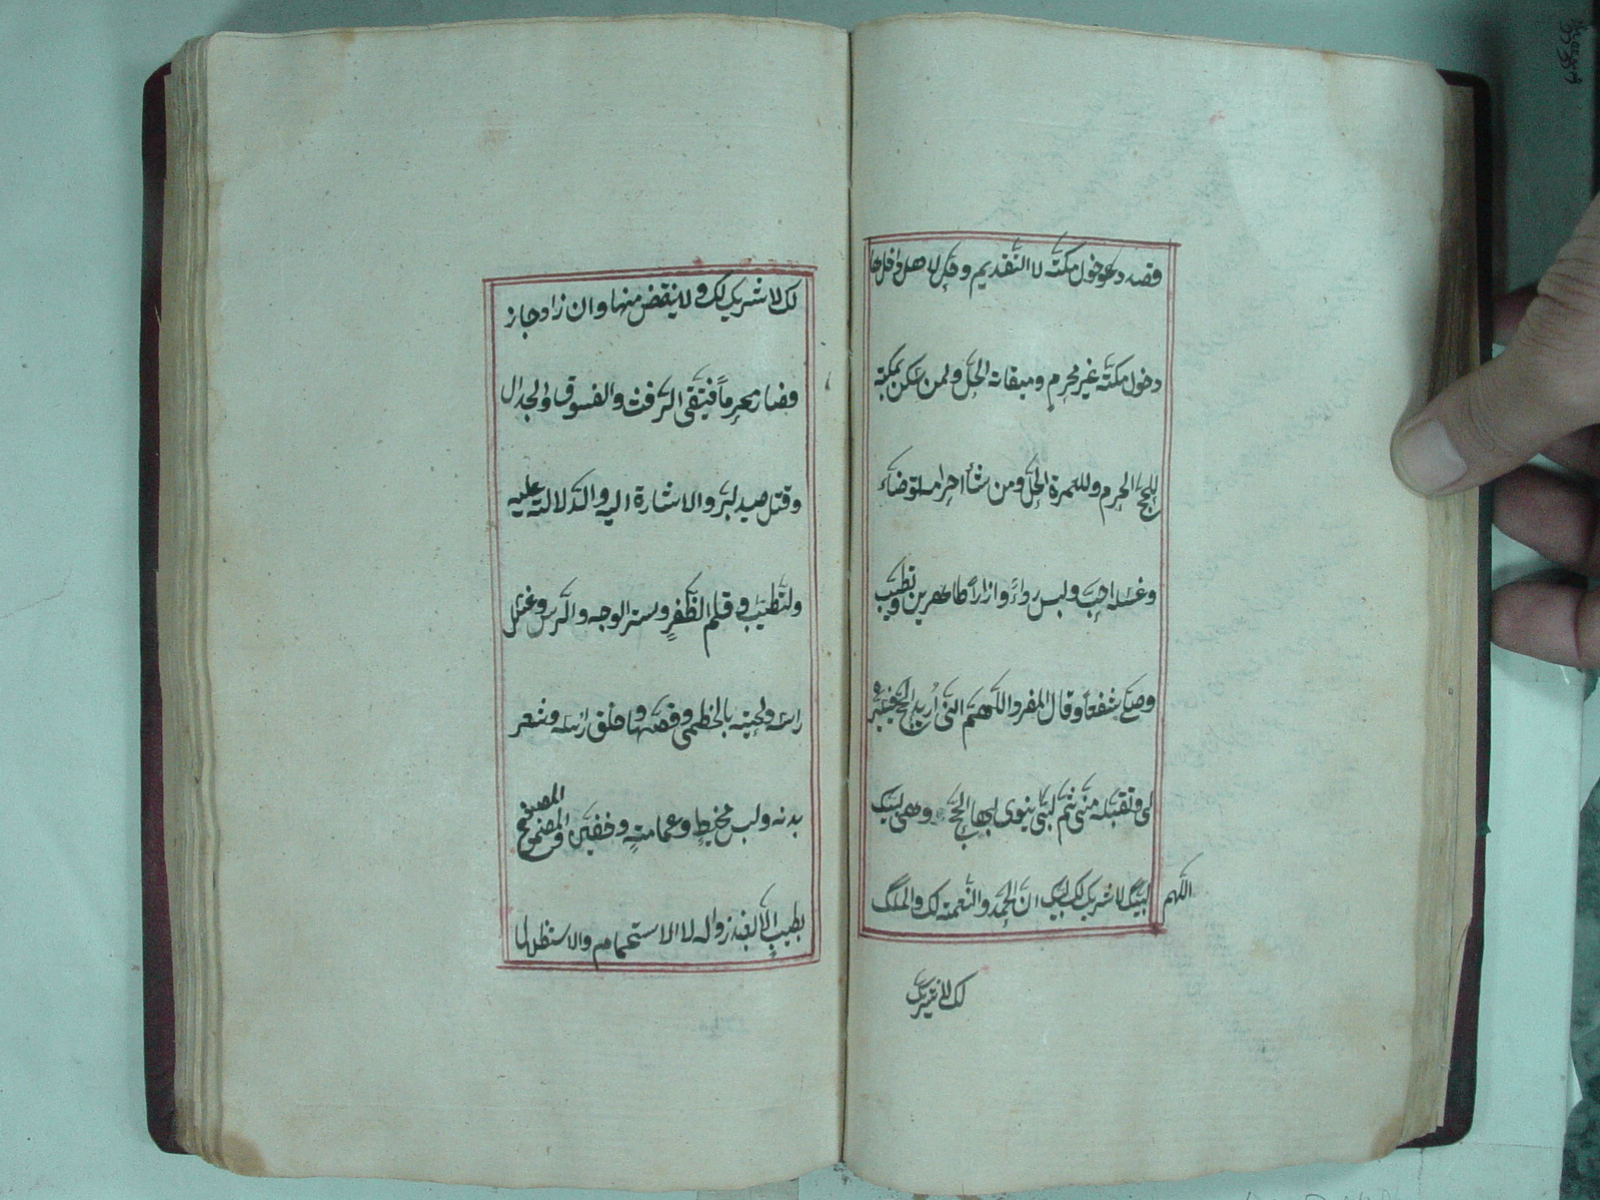 قصد دخول مكتة لا التقديم وحل لاهل داخلها
دخول مكتة غير محرم وميقاته الحل ولمن سكن بمكتة
للحج الحرم وللعمرة الحل ومن شأ احرامه توضاء
وغسله احب ولبس رداءً وازاراً طاهرين وتطيب
وصلى شفعاً وقال المفرد اللهم انى أريد الحج فيسره
لى وتقبله منى ثم لبى ينوى بها الحج وهى لبيك
اللهم لبيك لا شريك لك لبيك ان الحمد والنعمة لك والملك
لك لا شريك
لك لا شريك لك ولا ينقض منها وان زاد جاز
وصار محرماً فيتقى الرفث والفسوق والجدال
وقتل صيد البر والاشارة اليه والدلالة عليه
والتطيب وقلم الظفر وستر الوجه والرس وغسل
راسه ولحيته بالخطمى وقصها وحلق راسه وشعر
بدنه ولبس مخيط وعمامته وخفين والمصبوغ
بطيب الا بعد زواله لا الاستحمام والاستظلال